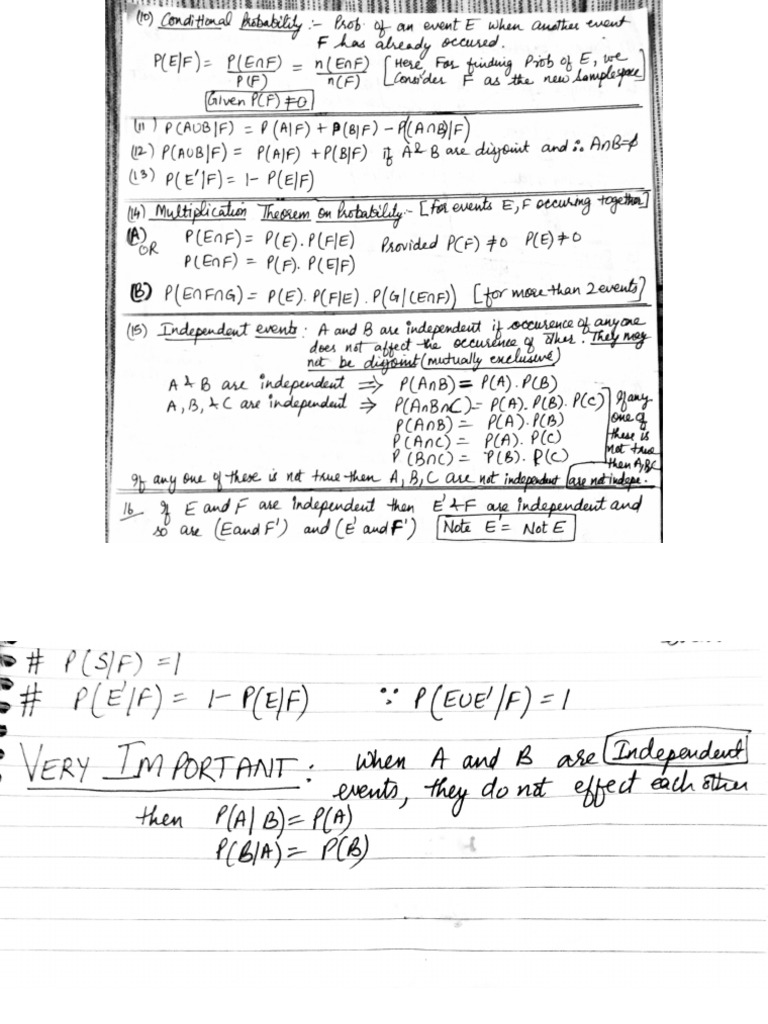 (10) Conditional Probability :- Prob. of an event E when another event
F has already occured.
P(E|F) = P(E∩F)/P(F) = n(E∩F)/n(F) [Here For finding Prob of E, we
Consider F as the new Samplespace]
Given P(F) ≠ 0
(11) P(A∪B|F) = P(A|F) + P(B|F) - P((A∩B)|F)
(12) P(A∪B|F) = P(A|F) + P(B|F) if A & B are disjoint and ∴ A∩B=φ
(13) P(E'|F) = 1- P(E|F)
(14) Multiplication Theorem on Probability:- [For events E, F occuring together]
(A) P(E∩F) = P(E). P(F|E) Provided P(F) ≠0 P(E)≠0
OR
P(E∩F) = P(F). P(E|F)
(B) P(E∩F∩G) = P(E). P(F|E). P(G|(E∩F)) [for more than 2 events]
(15) Independent events: A and B are independent if occurence of anyone
does not affect the occurence of other. They may
not be disjoint (mutually exclusive)
A & B are independent ⇒ P(A∩B) = P(A). P(B)
A, B, & C are independent ⇒ P(A∩B∩C) = P(A). P(B). P(C)
P(A∩B) = P(A). P(B)
P(A∩C) = P(A). P(C)
P(B∩C) = P(B). P(C)
If any
one of
these is
not true
then A,B,C
are not indepe.
If any one of these is not true then A, B, C are not independent
16 If E and F are independent then E' & F are independent and
so are (E and F') and (E' and F') Note E' = Not E
# P(S|F) = 1
# P(E'|F) = 1- P(E|F) ∵ P(E∪E'/F) = 1
VERY IMPORTANT: when A and B are Independent
events, they do not effect each other
then P(A|B) = P(A)
P(B|A) = P(B)